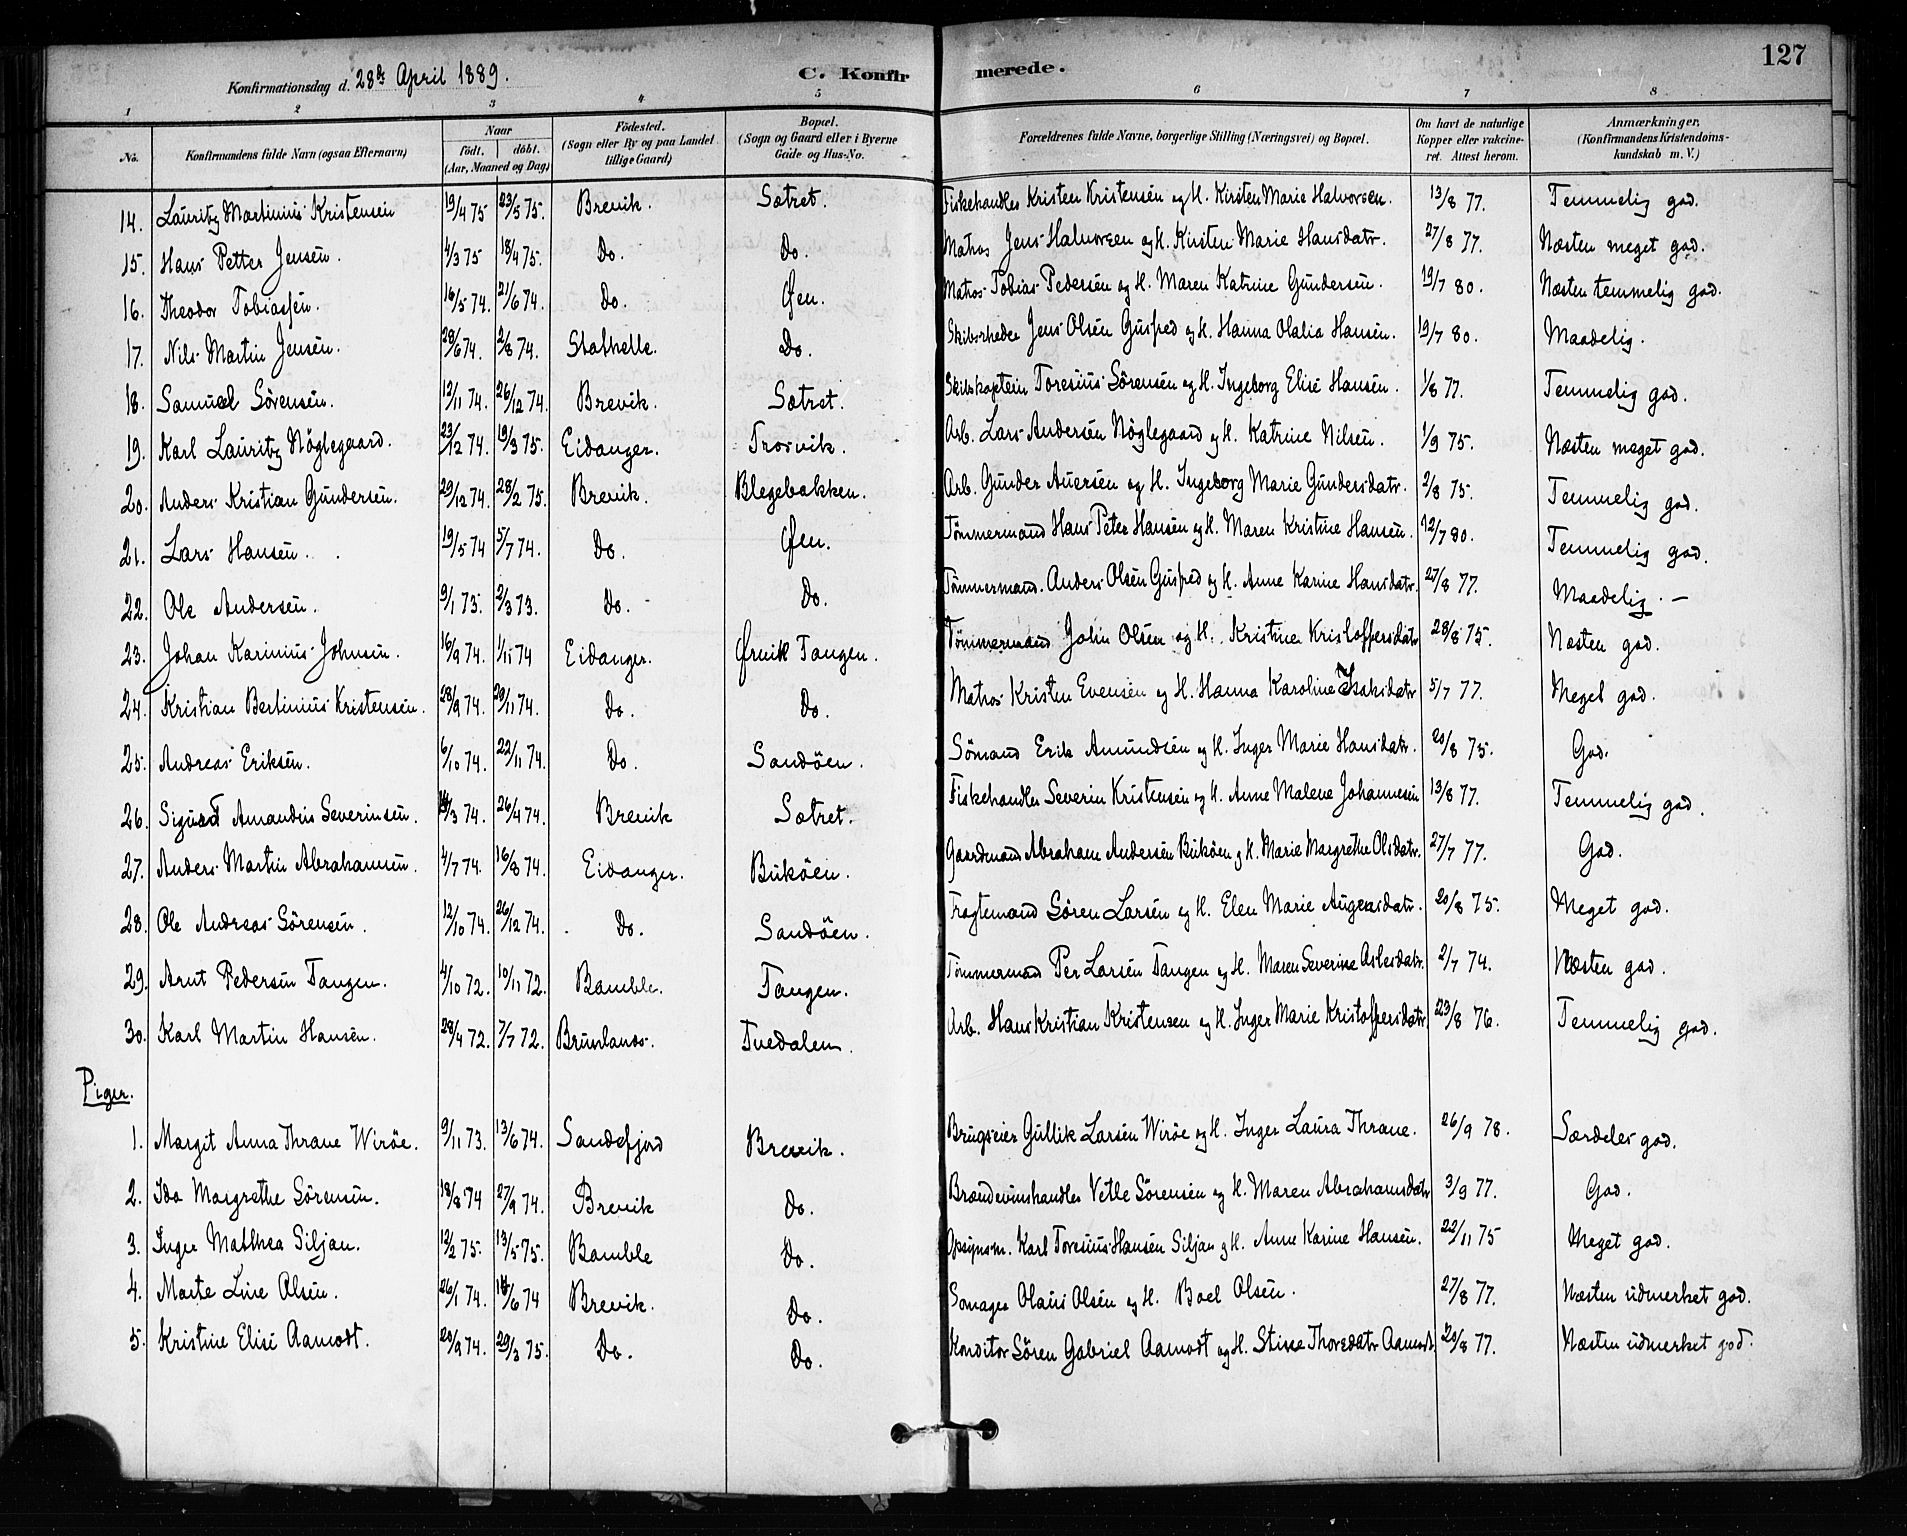 127
Konfirmationsdag d. 28de April 1889. C. Konfirmerede.
1 2 3 4 5 6 7 8
No. Konfirmandens fulde Navn (ogsaa Efternavn) Naar födt. döbt. (Aar, Maaned og Dag) Födested. (Sogn eller By og paa Landet tillige Gaard) Bopæl. (Sogn og Gaard eller i Byerne Gade og Hus-No. Forældrenes fulde Navne, borgerlige Stilling (Næringsvei) og Bopæl. Om havt de naturlige Kopper eller vakcineret. Attest herom. Anmærkninger. (Konfirmandens Kristendomskundskab m. V.)
14. Lauritz Martinius Kristensen 19/4 75 23/5 75. Brevik. Sætret. Fiskehandler Kristen Kristensen og H. Kirsten Marie Halvorsen. 13/8 77. Temmelig god.
15. Hans Petter Jensen. 4/3 75 18/4 75. Do. Do. Matros Jens Halvorsen og H. Kirsten Marie Hansdatr. 27/8 77. Næsten meget god.
16. Theodor Tobiassen. 16/5 74. 21/6 74. Do. Øen. Matros Tobias Pedersen og H. Maren Katrine Gundersen. 19/7 80. Næsten temmelig god.
17. Nils Martin Jensen. 28/6 74. 2/8 74. Stathelle. Do. Skibsrheder Jens Olsen Gusfred og H. Hanna Olalia Hansen. 19/7 80. Maadelig.
18. Samuel Sörensen. 12/11 74. 26/12 74. Brevik. Sætret. Skibskaptein Toresius Sörensen og H. Ingeborg Elise Hansen. 1/8 77. Temmelig god.
19. Karl Lauritz Nöglegaard. 23/12 74. 19/3 75. Eidanger. Trosvik. Arb. Lars Andersen Nöglegaard og H. Katrine Nilsen. 1/9 75. Næsten meget god.
20. Anders Kristian Gundersen. 29/12 74. 28/2 75. Brevik. Blegebakken. Arb. Gunder Auersen og H. Ingeborg Marie Gundersdatr. 2/8 75. Temmelig god.
21. Lars Hansen. 19/5 74 5/7 74. Do. Øen. Tömmermand Hans Peter Hansen og H. Maren Kristine Hansen. 12/7 80. Temmelig god.
22. Ole Andersen. 9/1 73. 2/3 73. Do. Do. Tömmermand. Anders Olsen Gusfred og H. Anne Karine Hansdatr. 27/8 77. Maadelig. —
23. Johan Karinius Johnsen. 16/9 74. 1/11 74 Eidanger. Ørvik Tangen. Tömmermand John Olsen og H. Kristine Kristoffersdatr 28/8 75. Næsten god.
24. Kristian Bertinius Kristensen. 28/9 74. 29/11 74. Do. Do. Matros Kristen Evensen og H. Hanna Karoline Isaksdatr 5/7 77. Meget god.
25. Andreas Eriksen. 6/10 74. 22/11 74. Do. Sandöen. Sömand Erik Amundsen og H. Inger Marie Hansdatr. 20/8 75. God.
26. Sigurd Amandus Severinsen. /3 74. 26/4 74. Brevik Sætret. Fiskehandler Severin Kristensen og H. Anne Malene Johannesen 13/8 77. Temmelig god.
27. Anders Martin Abrahamsen. 4/7 74. 16/8 74. Eidanger. Buköen. Gaardmand Abraham Andersen Buköen og H. Marie Margrethe Olsdatr. 27/7 77. God.
28. Ole Andreas Sörensen. 12/10 74. 26/12 74. Do. Sandöen. Fragtemand Sören Larsen og H. Elen Marie Augensdatr. 20/8 75. Meget god.
29. Arnt Pedersen Tangen. 4/10 72. 10/11 72. Bamble. Tangen. Tömmermand Per Larsen Tangen og H. Maren Severine Aslesdatr. 2/7 74. Næsten god.
30. Karl Martin Hansen. 28/4 72. 7/7 72. Brunlanes. Tvedalen. Arb. Hans Kristian Kristensen og H. Inger Marie Kristoffersdatr 23/8 76. Temmelig god.
Piger.
1. Margit Anna Thrane Wiröe. 9/11 73. 13/6 74. Sandefjord Brevik. Brugseier Gullik Larsen Wiröe og H. Inger Laura Thrane. 26/9 78. Særdeles god.
2. Ida Margrethe Sörensen. 18/8 74 27/9 74. Brevik Do. Brændevinshandler Vetle Sörensen og H. Maren Abrahamsdatr 3/9 77. God.
3. Inger Mathea Siljan. 12/2 75. 13/5 75. Bamble Do. Opsynsm. Karl Toresius Hansen Siljan og H. Anne Karine Hansen. 22/11 75 Meget god.
4. Marte Line Olsen. 26/1 74. 14/6 74 Brevik. Do. Somager Olaus Olsen og H. Boel Olsen. 27/8 77. Næsten udmerket god.
5. Kristine Elise Aamodt. 20/9 74. 29/3 75. Do. Do. Konditor Sören Gabriel Aamodt og H. Stine Thorsdatr Aamodt. 20/8 77. Næsten udmerket god.